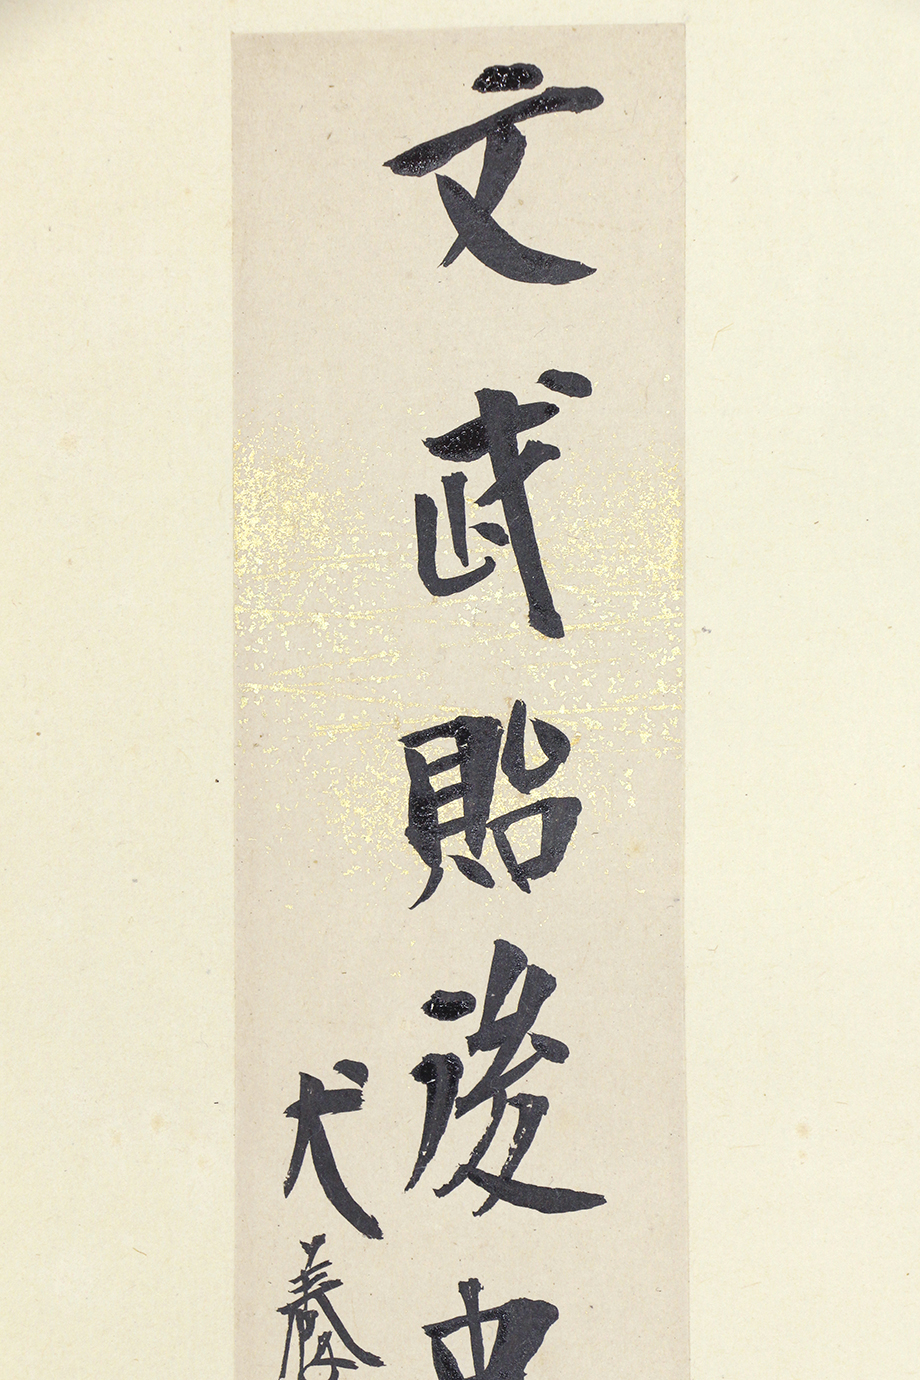 文武貽後
犬養